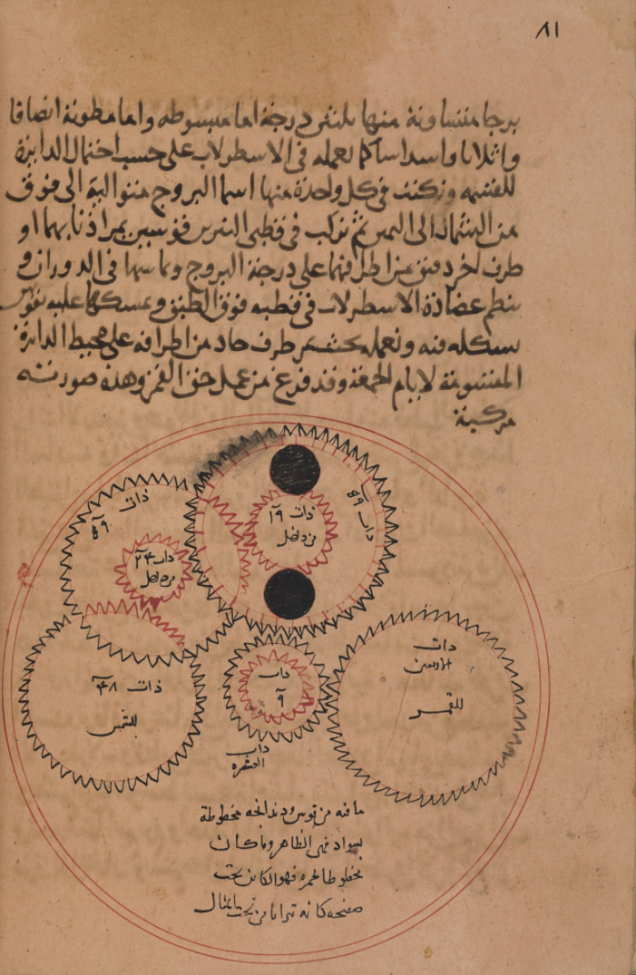 ٨١
برجا متساوية منها بلثين درجة اما مبسوطه واما مطوية انصافا
واثلاثا واسداسا كما نعمله في الاسطرلاب على حسب احتمال الدايرة
للقسمه ونكتب في كل واحدة منها اسما البروج متوالية الى فوق
من الشمال الى اليمين ثم نركب في قطبي النيرين قوسين يمر اذنابهما او
طرف اخر دقيق من اطرافهما على درجة البروج ويماسها في الدوران و
ينظم عضادة الاسطرلاب في قطبه فوق الطبق ويمسكها عليه بفرس
فيه ونعمله بحيث يمر طرف حاد من اطرافه على محيط الدايرة
المقسومة لايام الجمعة وقد فرغ من عمل حق القمر وهذه صورته
مركبة
ذات ٥٩
ذات ١٩
من داخل
ذات ٥٩
ذات ٢٤
من داخل
ذات ٤٨
للشمس
ذات
٩
ذات
العشرة
ذات
الاربعين
للقمر
ما فيه من قوس ودندانجه مخطوطة
بسواد فهي الظاهر وما كان
مخطوطا بحمره فهو الكاين تحت
صفحه كانه تراه من تحت